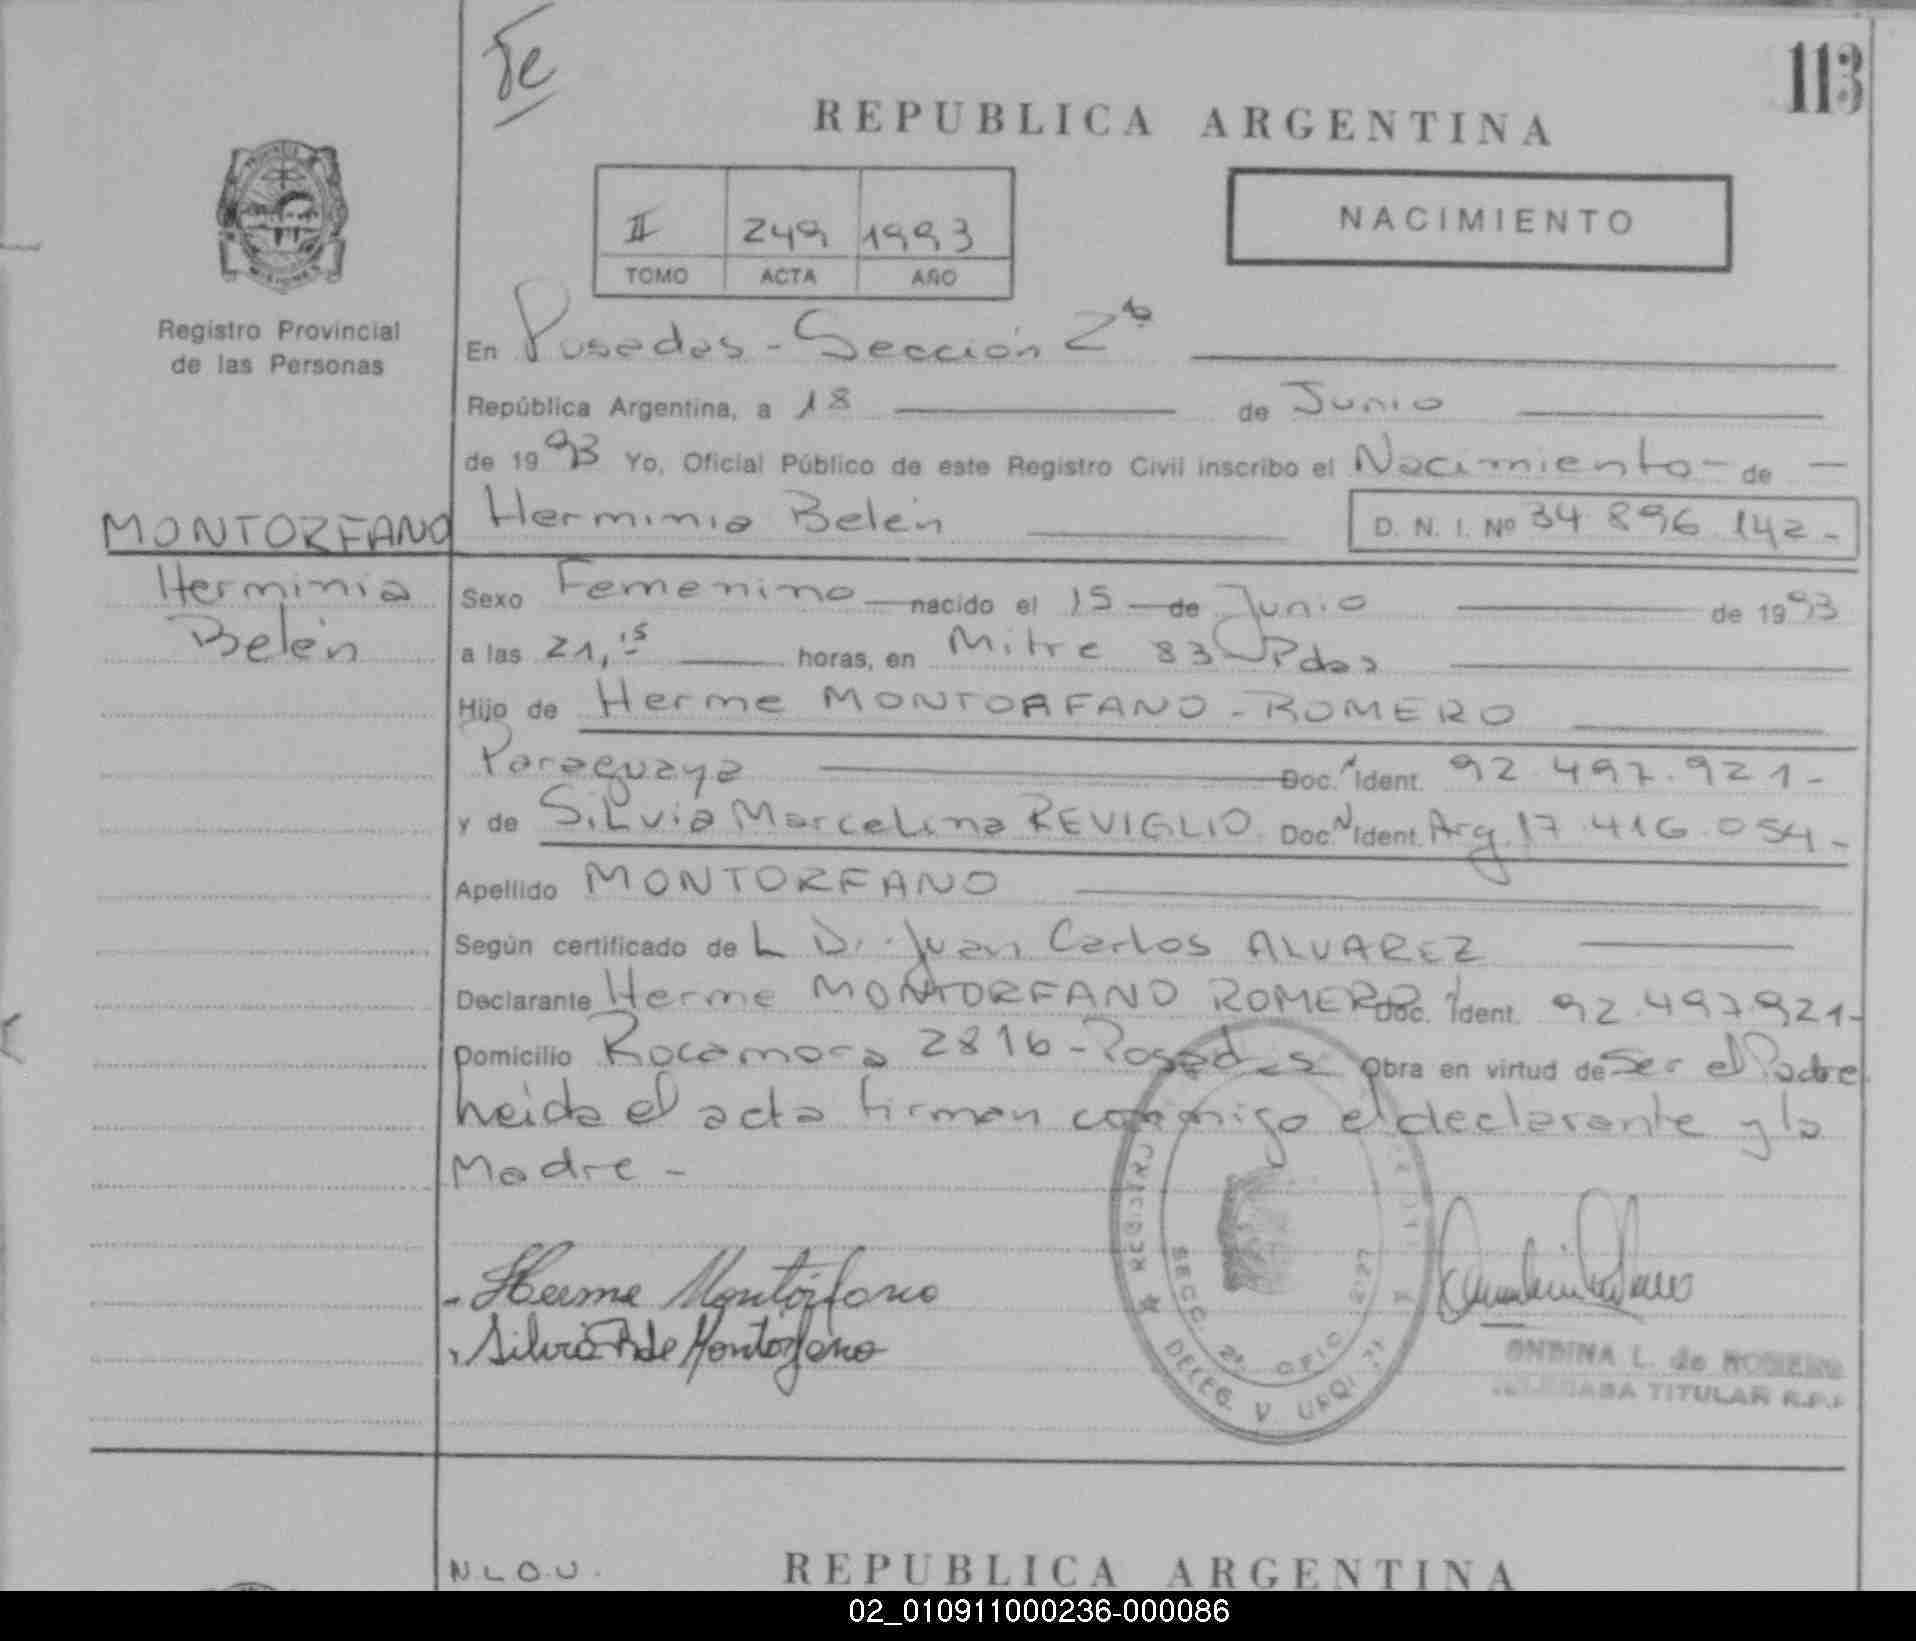 Fe
113
REPUBLICA ARGENTINA
II 249 1993
TOMO ACTA AÑO
NACIMIENTO
PROVINCIA
MISIONES
Registro Provincial
de las Personas
En Posadas - Sección 2ª
República Argentina, a 18 de Junio
de 1993 Yo, Oficial Público de este Registro Civil inscribo el Nacimiento - de -
MONTORFANO Herminia Belén D. N. I. Nº 34.896.142 -
Herminia
Belén
Sexo Femenino nacido el 15 de Junio de 1993
a las 21,15 horas, en Mitre 83 Pdas
Hijo de Herme MONTORFANO - ROMERO
Paraguaya Doc. Ident. 92.497.921 -
y de Silvia Marcelina REVIGLIO. Doc. Ident. Arg. 17.416.054 -
Apellido MONTORFANO
Según certificado de L Dr. Juan Carlos ALVAREZ
Declarante Herme MONTORFANO ROMERO Doc. Ident. 92.497.921 -
Domicilio Rocamora 2816 - Posadas Obra en virtud de Ser el Padre
heida el acta firman conmigo el declarante y la
Madre -
- Herme Montórfano
Silvia R de Montorfano
REGISTRO
SECC. 2ª OFIC. 2227
DELEG. V URQ.
ONDINA L. de ROMERO
DELEGADA TITULAR R.P.P
N.L.O.U.
REPUBLICA ARGENTINA
02_010911000236-000086